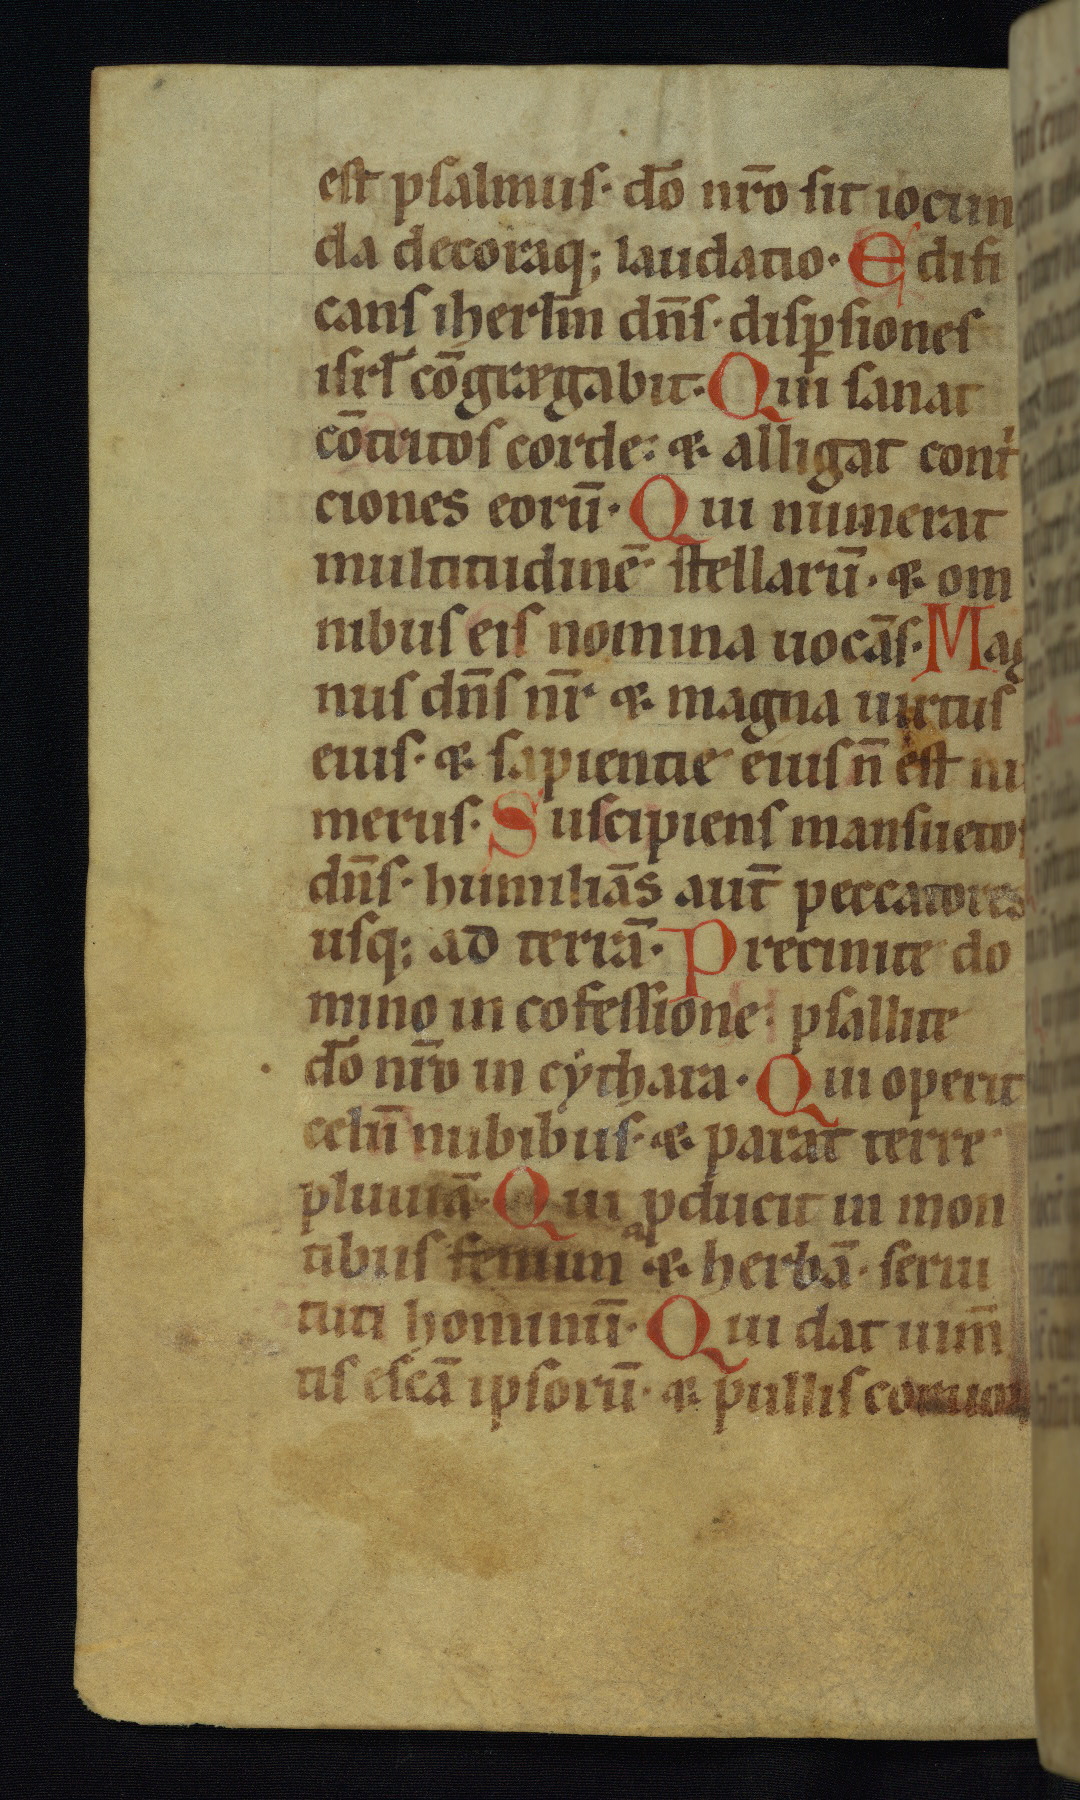 est psalmus· dō nr̄o sit iocun
da decoraq; laudatio· Edifi
cans iherl̄m dn̄s· disp̱siones
isrl̄ cōgregabit· Qui sanat
cōtritos corde: & alligat cont
ciones eorū· Qui numerat
multitudinē stellarū· & om
nibus eis nomina uocās· Mag
nus dn̄s nr̄ & magna uirtus
eius· & sapientie eius n̄ est nu
merus· Suscipiens mansuetos
dn̄s· humiliās aut̄ peccatores
usq; ad terrā· Precinite do
mino in cofessione: psallite
dō nr̄o in cythara· Qui operit
celū nubibus· & parat terre
pluuiā· Qui ꝓducit in mon
tibus fenum & herbā· serui
tuti hominū· Qui dat ium̄
tis escā ipsorū· & pullis coruoꝝ